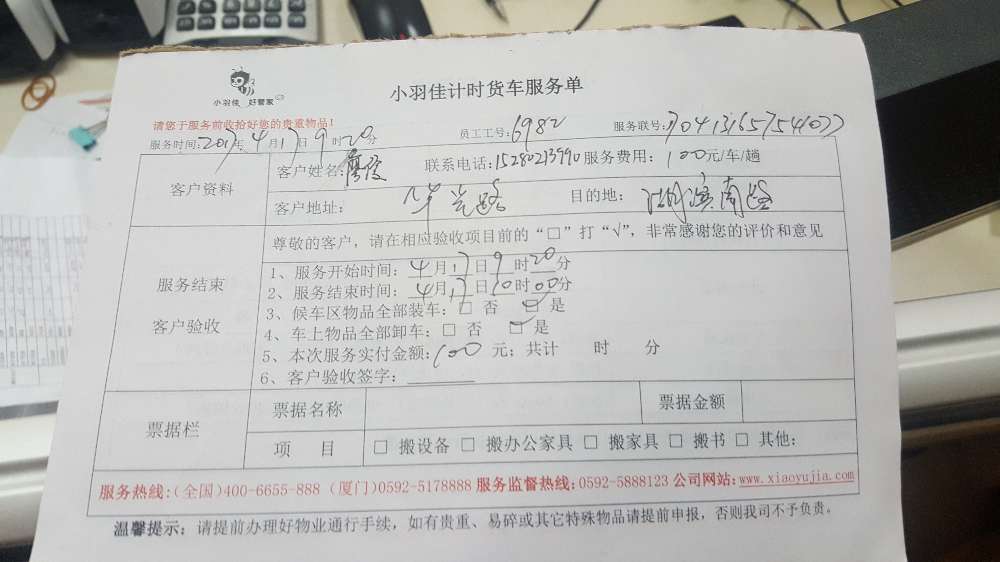 小羽佳 好管家
小羽佳计时货车服务单
请您于服务前收拾好您的贵重物品!
服务时间:2017年4月17日9时20分 员工工号:6982 服务联号:
客户资料
客户姓名: 联系电话:15280213990 服务费用:100元/车/趟
客户地址: 华光路 目的地: 湖滨南路
尊敬的客户,请在相应验收项目前的“□”打“√”,非常感谢您的评价和意见
服务结束
客户验收
1、服务开始时间:4月17日9时20分
2、服务结束时间:4月17日10时00分
3、候车区物品全部装车:□ 否 ☑ 是
4、车上物品全部卸车:□ 否 ☑ 是
5、本次服务实付金额:100 元;共计 时 分
6、客户验收签字:
票据栏
票据名称 票据金额
项 目 □ 搬设备 □ 搬办公家具 □ 搬家具 □ 搬书 □ 其他:
服务热线:(全国)400-6655-888 (厦门)0592-5178888 服务监督热线:0592-5888123 公司网站:www.xiaoyujia.com
温馨提示:请提前办理好物业通行手续,如有贵重、易碎或其它特殊物品请提前申报,否则我司不予负责。